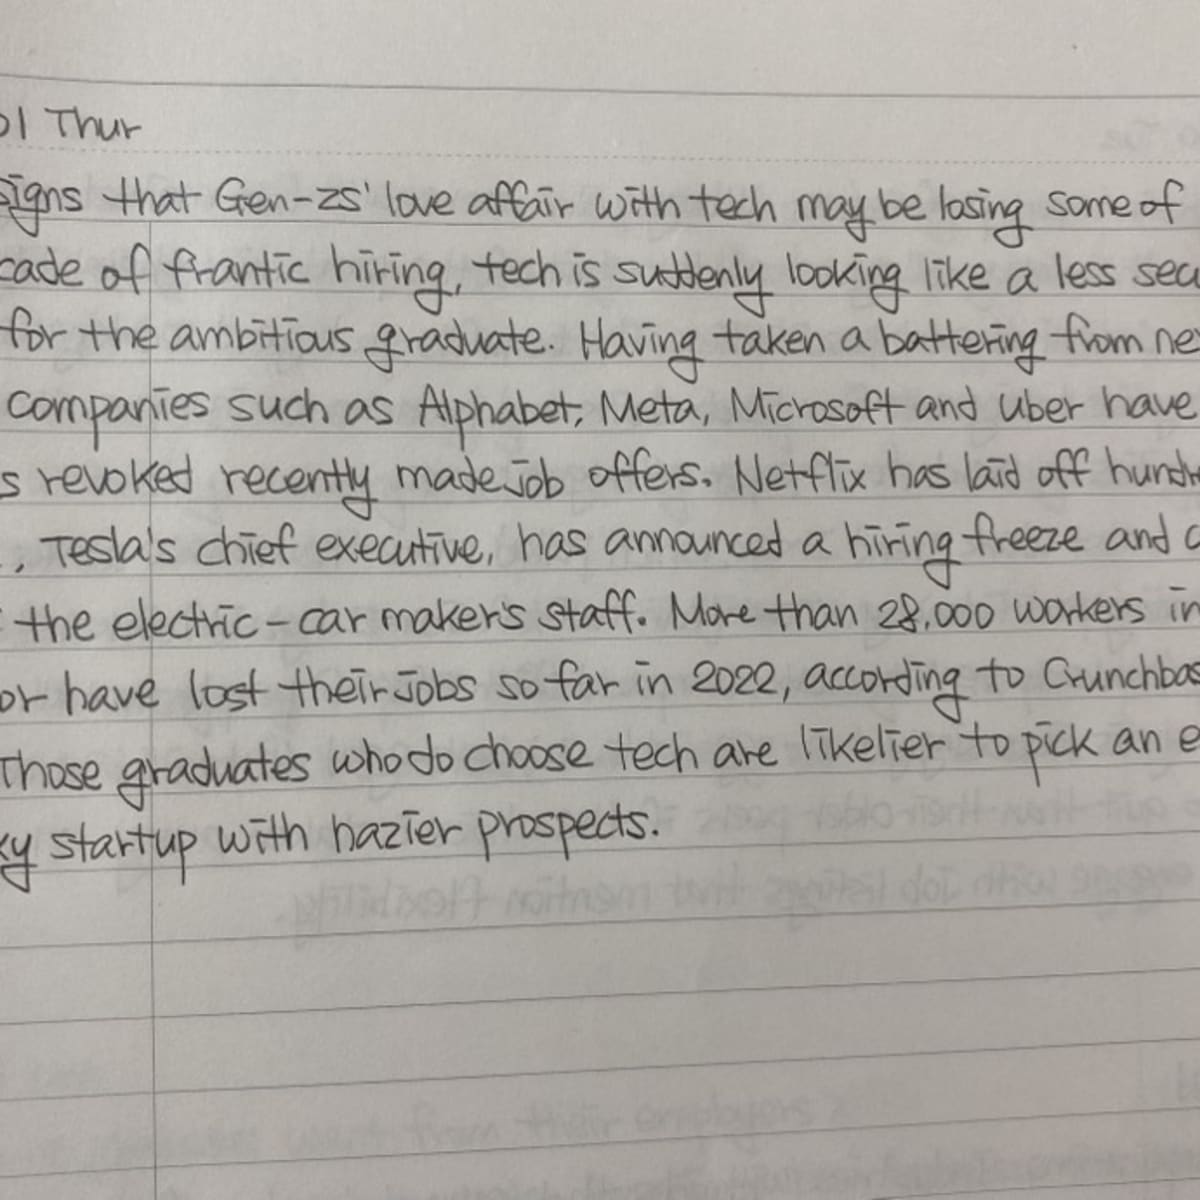 01 Thur
signs that Gen-zs' love affair with tech may be losing some of
cade of frantic hiring, tech is suddenly looking like a less secu
for the ambitious graduate. Having taken a battering from ne
companies such as Alphabet, Meta, Microsoft and Uber have
s revoked recently made job offers. Netflix has laid off hundr
, Tesla's chief executive, has announced a hiring freeze and c
the electric-car maker's staff. More than 28,000 workers in
or have lost their jobs so far in 2022, according to Crunchbas
Those graduates who do choose tech are likelier to pick an e
ky startup with hazier prospects.